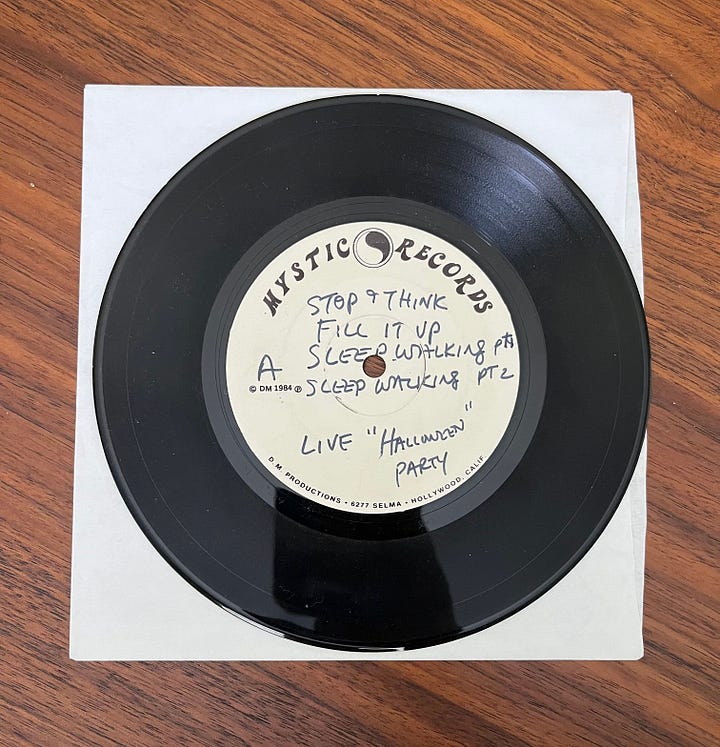 MYSTIC RECORDS
STOP & THINK
FILL IT UP
A SLEEP WALKING pt1
© DM 1984 ℗ SLEEP WALKING PT 2
LIVE "HALLOWEEN"
PARTY
D. M. PRODUCTIONS • 6277 SELMA • HOLLYWOOD, CALIF.